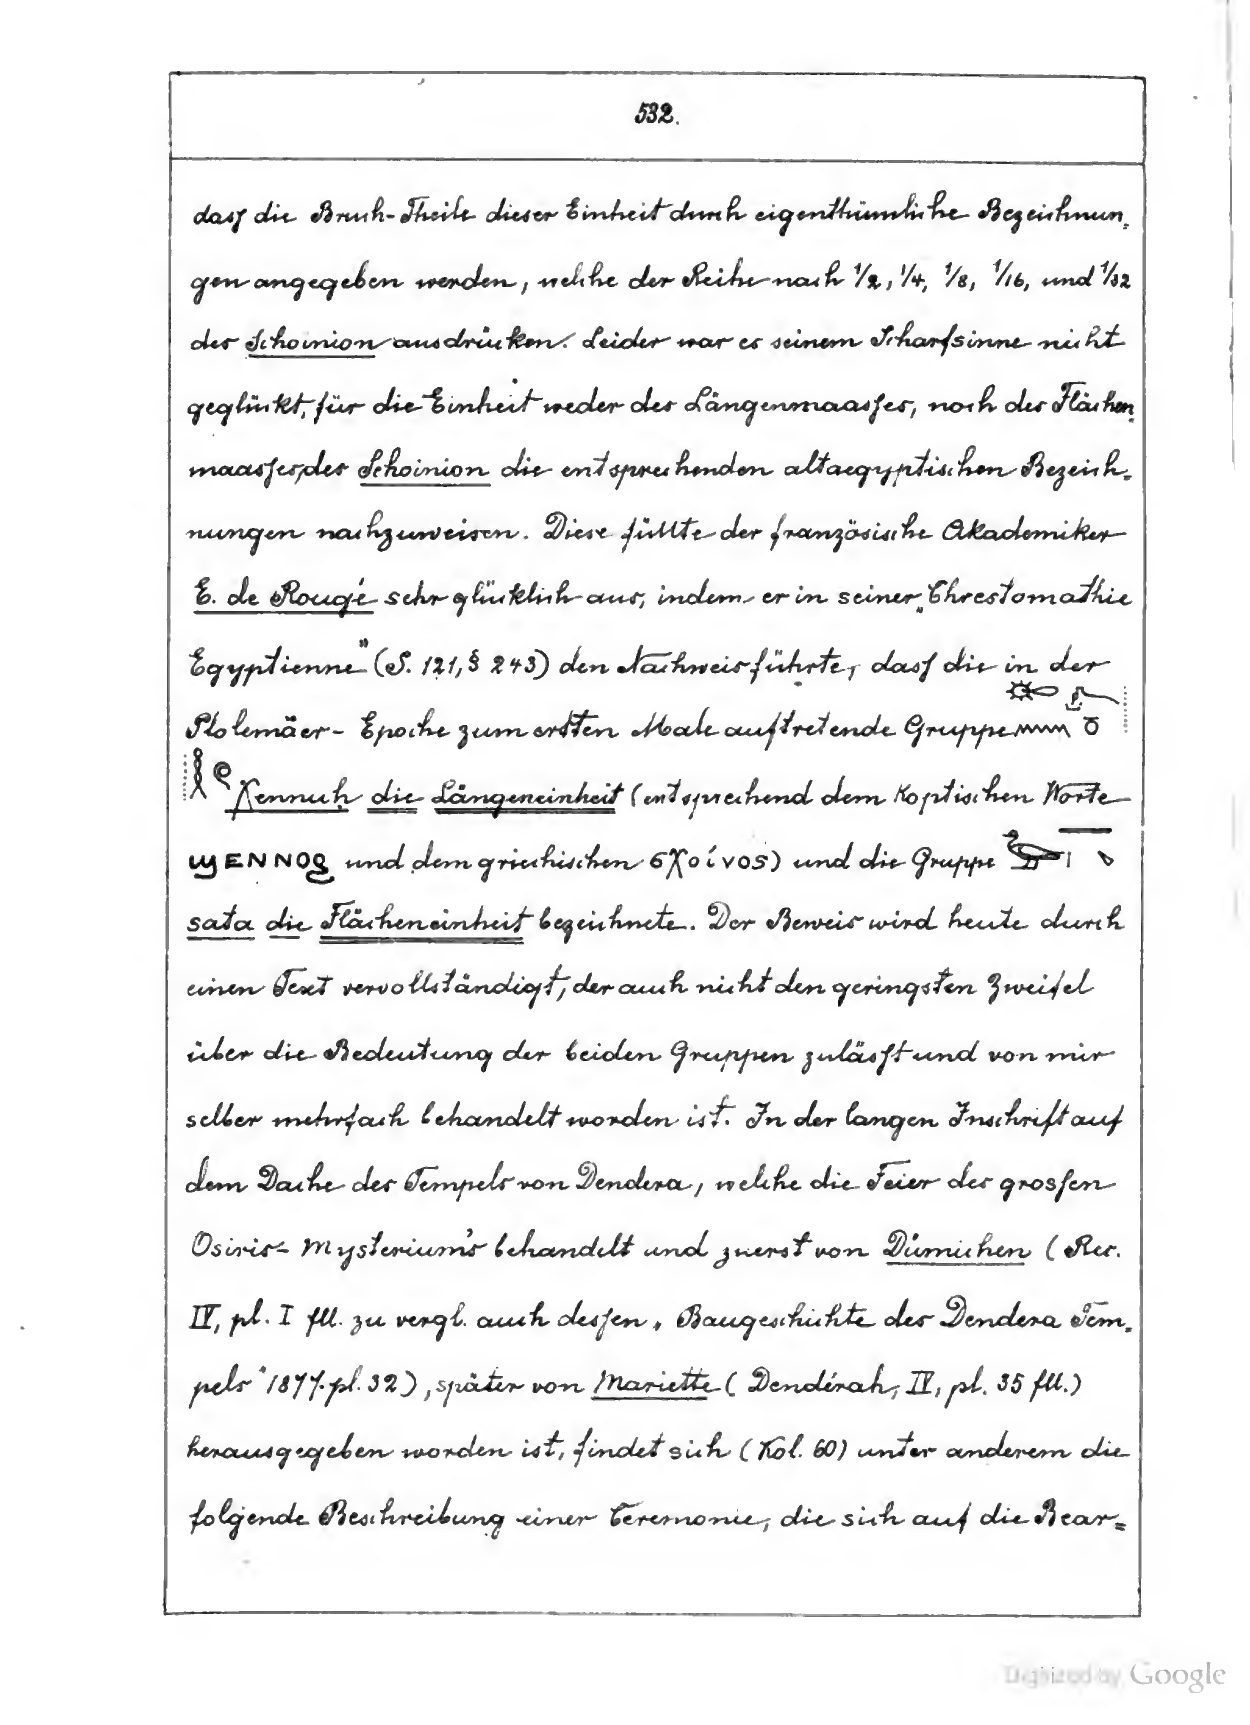 532.
dass die Bruch-Theile dieser Einheit durch eigenthümliche Bezeichnun=
gen angegeben werden, welche der Reihe nach 1/2, 1/4, 1/8, 1/16, und 1/32
der Schoinion ausdrücken. Leider war es seinem Scharfsinne nicht
geglückt, für die Einheit weder des Längenmaasses, noch des Flächen=
maasses, des Schoinion die entsprechenden altaegyptischen Bezeich=
nungen nachzuweisen. Diese füllte der französische Akademiker
E. de Rougé sehr glücklich aus, indem er in seiner „Chrestomathie
Egyptienne" (S. 121, § 243) den Nachweis führte, dass die in der
Ptolemäer-Epoche zum ersten Male auftretende Gruppe
Xennuh die Längeneinheit (entsprechend dem koptischen Worte
ϣⲉⲛⲛⲟϩ und dem griechischen σχοίνος) und die Gruppe
sata die Flächeneinheit bezeichnete. Der Beweis wird heute durch
einen Text vervollständigt, der auch nicht den geringsten Zweifel
über die Bedeutung der beiden Gruppen zulässt und von mir
selber mehrfach behandelt worden ist. In der langen Inschrift auf
dem Dache des Tempels von Dendera, welche die Feier des grossen
Osiris-Mysterium's behandelt und zuerst von Dümichen (Rec.
IV, pl. I fll. zu vergl. auch dessen „Baugeschichte des Dendera Tem=
pels" 1877. pl. 32), später von Mariette (Dendérah, IV, pl. 35 fll.)
herausgegeben worden ist, findet sich (Kol. 60) unter anderem die
folgende Beschreibung einer Ceremonie, die sich auf die Bear=
Digitized by Google